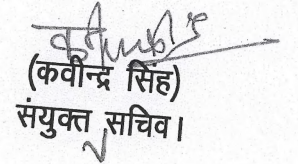 (कवीन्द्र सिंह)
संयुक्त सचिव।